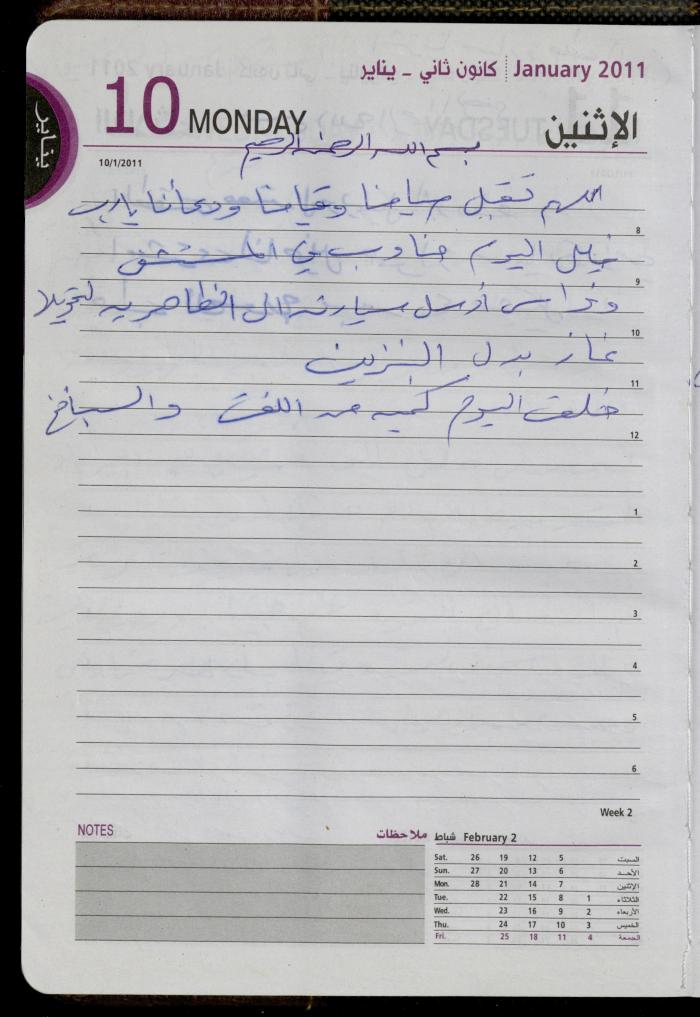 كانون ثاني - يناير January 2011
10 MONDAY الإثنين
يناير
10/1/2011
بسم الله الرحمن الرحيم
اللهم تقبل صيامنا وقيامنا ودعائنا يارب
خليل اليوم مناوب في المستشفى
و أرسل سيارته الى الظاهرية
غاز بدل البنزين
اليوم كميه من اللفت والسبانخ
8
9
10
11
12
1
2
3
4
5
6
Week 2
NOTES ملاحظات
شباط February 2
Sat. 26 19 12 5 السبت
Sun. 27 20 13 6 الأحد
Mon. 28 21 14 7 الإثنين
Tue. 22 15 8 1 الثلاثاء
Wed. 23 16 9 2 الأربعاء
Thu. 24 17 10 3 الخميس
Fri. 25 18 11 4 الجمعة